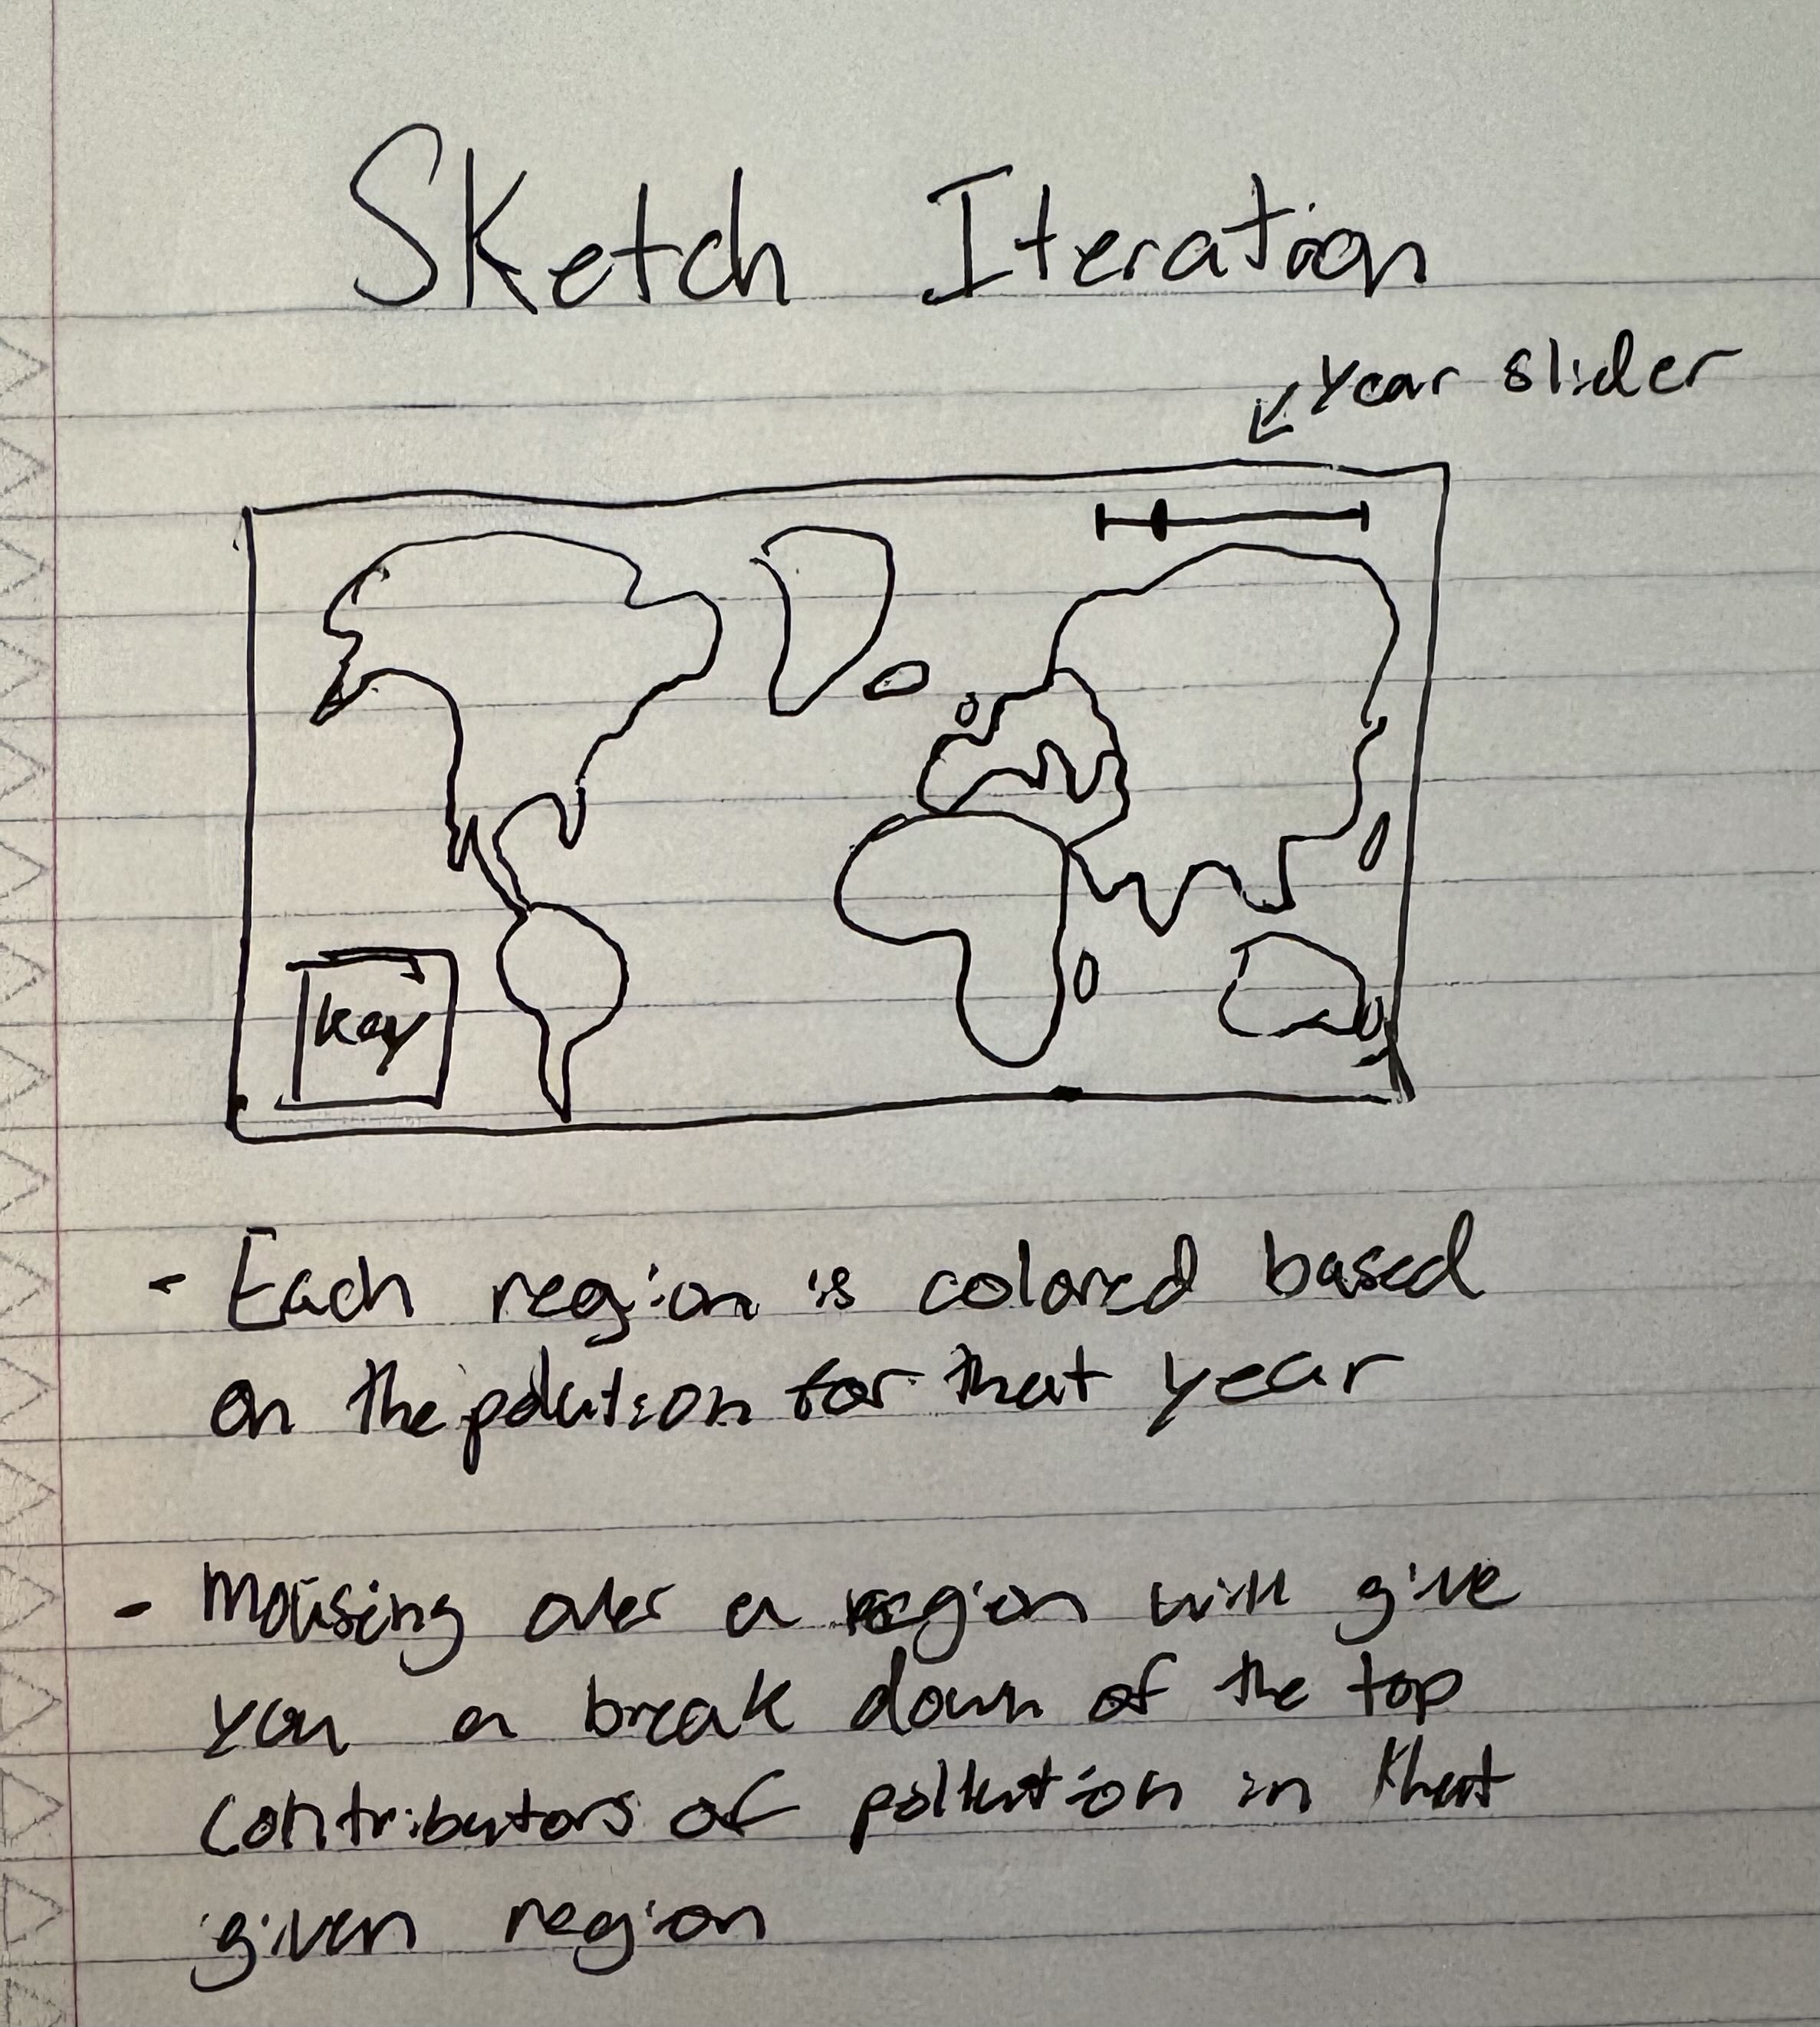 Sketch Iteration
Year slider
Key
- Each region is colored based
on the polution for that year
- Mousing over a region will give
you a break down of the top
contributors of pollution in that
given region